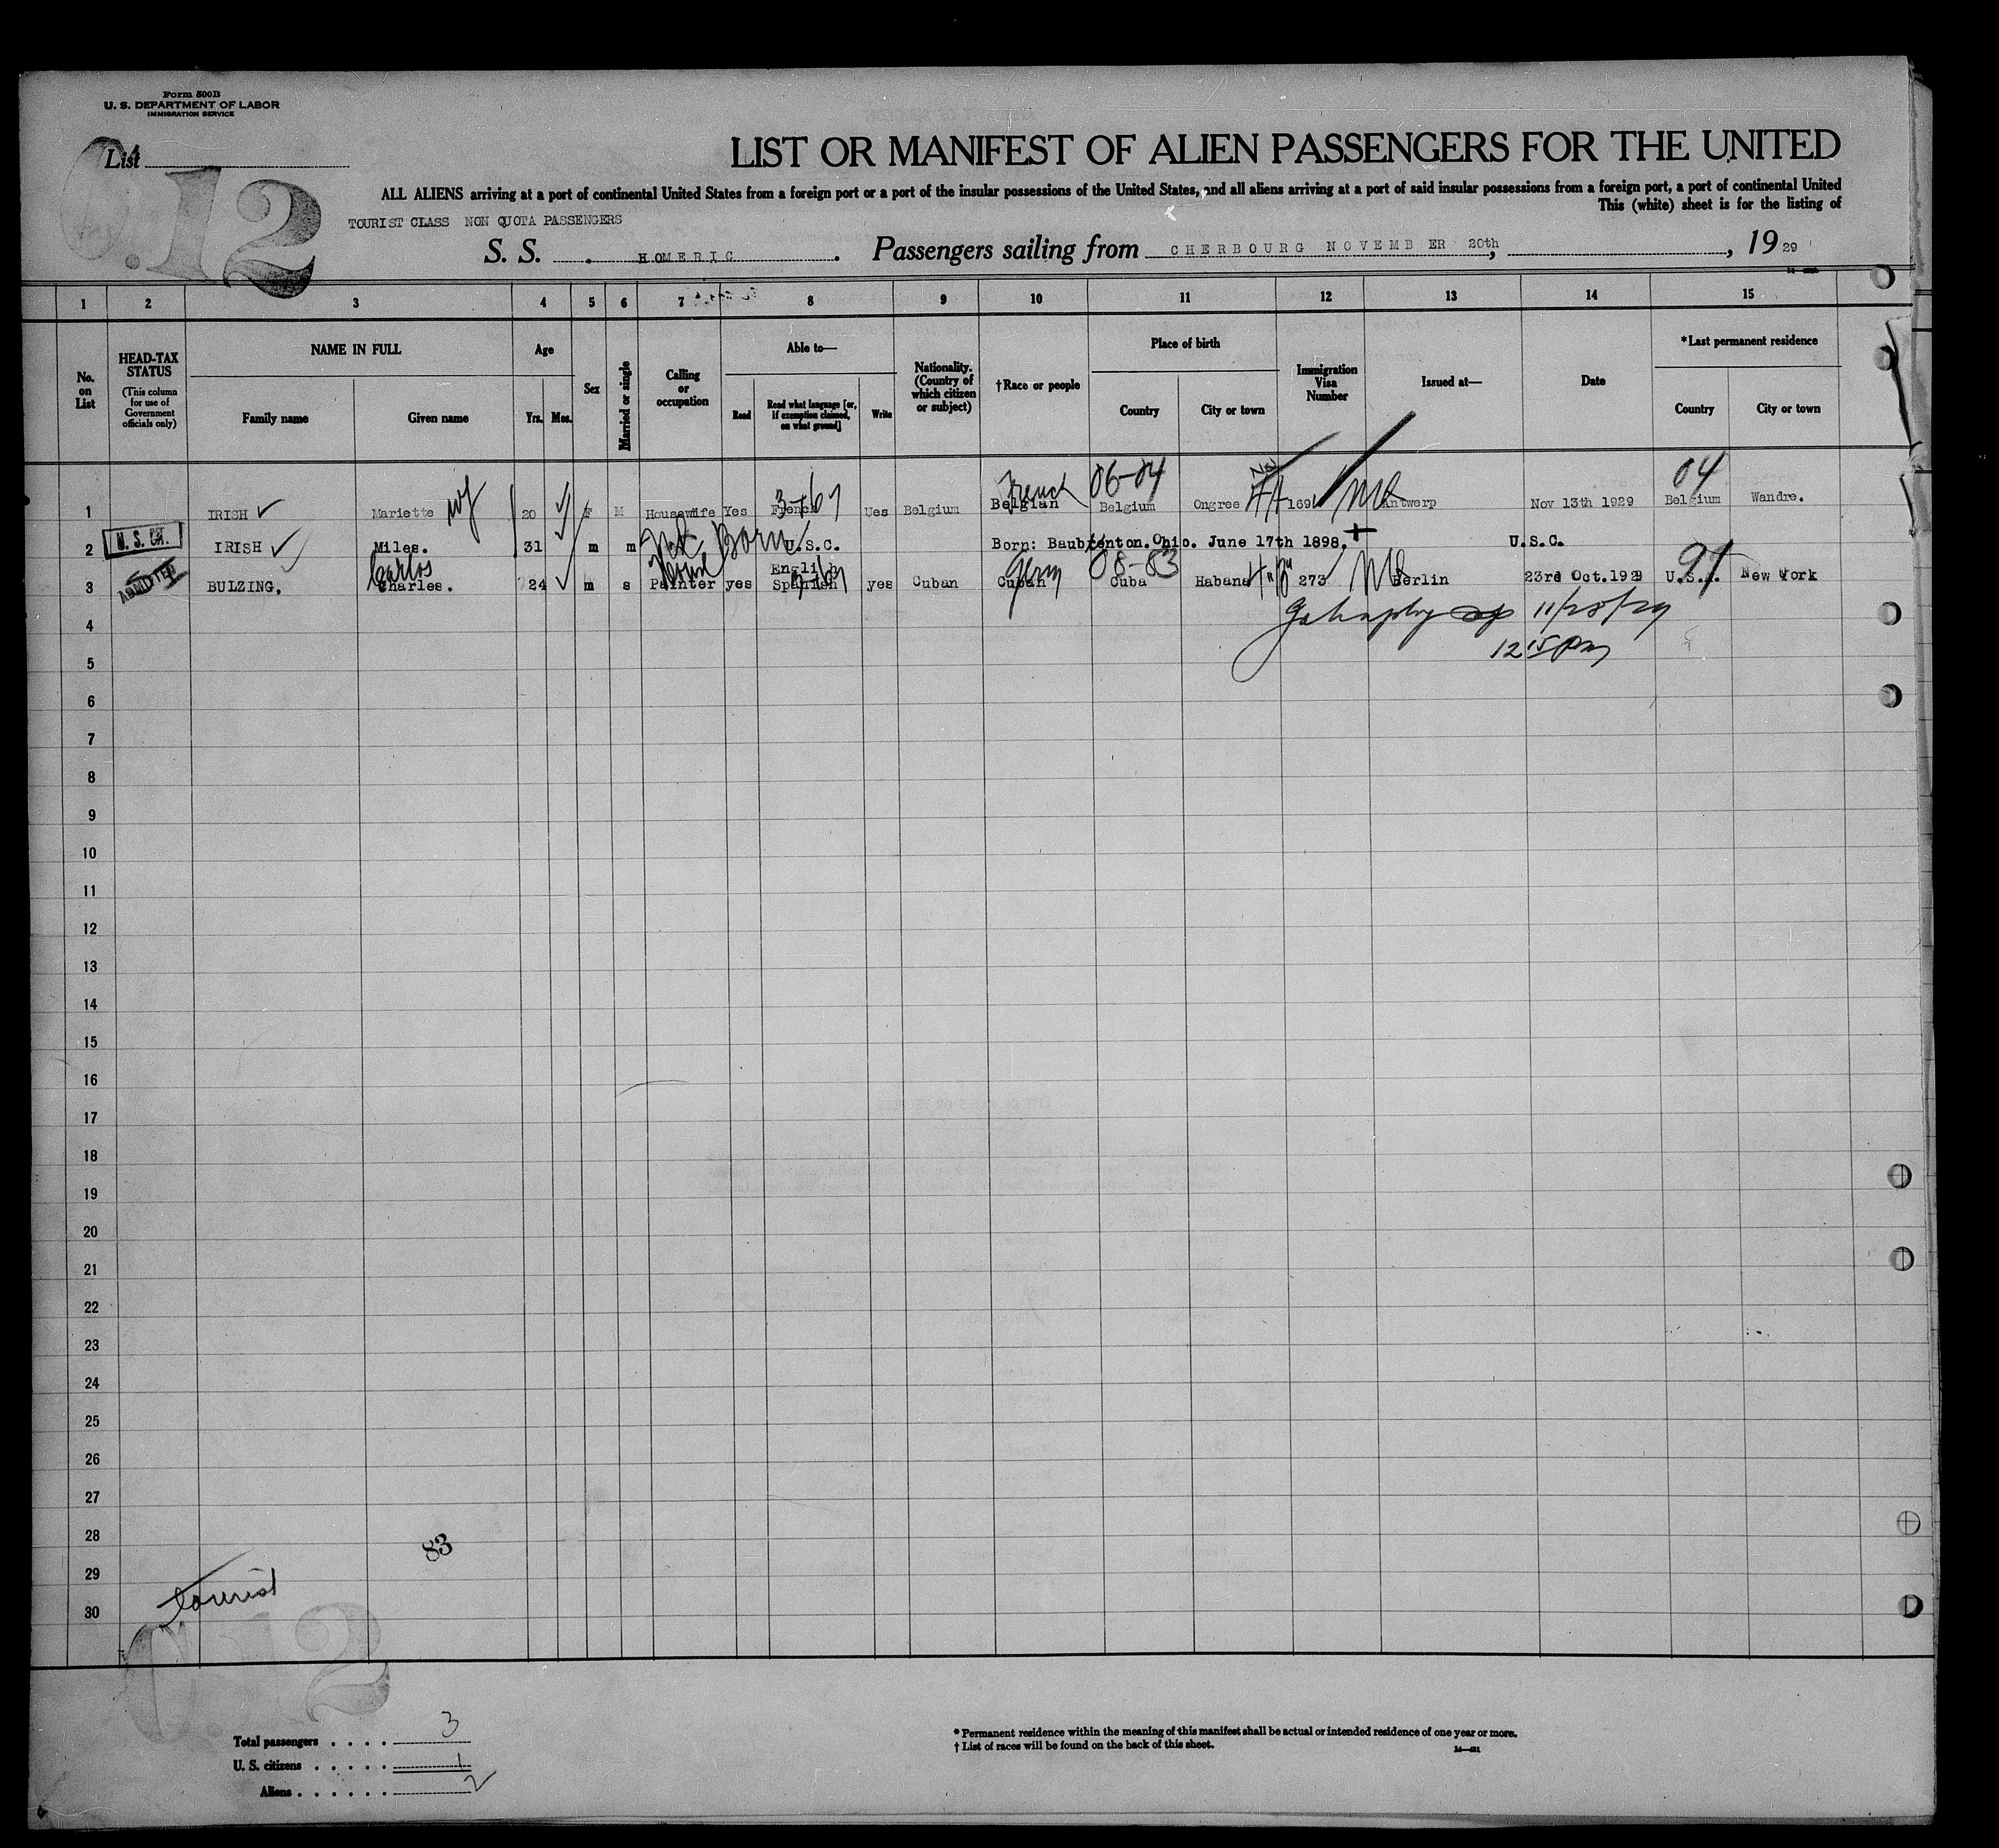 Form 500B
U. S. DEPARTMENT OF LABOR
IMMIGRATION SERVICE
List
12
LIST OR MANIFEST OF ALIEN PASSENGERS FOR THE UNITED
ALL ALIENS arriving at a port of continental United States from a foreign port or a port of the insular possessions of the United States, and all aliens arriving at a port of said insular possessions from a foreign port, a port of continental United
This (white) sheet is for the listing of
TOURIST CLASS NON QUOTA PASSENGERS
S. S. HOMERIC Passengers sailing from CHERBOURG NOVEMBER 20th, 1929
1 2 3 4 5 6 7 8 9 10 11 12 13 14 15
No. on List
HEAD-TAX STATUS
(This column for use of Government officials only)
NAME IN FULL
Family name
Given name
Age
Yrs. Mos.
Sex
Married or single
Calling or occupation
Able to—
Read
Read what language [or, if exemption claimed, on what ground]
Write
Nationality. (Country of which citizen or subject)
†Race or people
Place of birth
Country
City or town
Immigration Visa Number
Issued at—
Date
*Last permanent residence
Country
City or town
French 06-04 04
1 IRISH Mariette wf 20 F M Housewife Yes French Ues Belgium Belgian Belgium Ongree 169 Antwerp Nov 13th 1929 Belgium Wandre.
Not Born
2 IRISH Miles. 31 m m U.S.C. Born: Baubrenton.Ohio. June 17th 1898. U.S.C.
Carlos English Germ 08-83 91
3 ADMITTED BULZING. Charles. 24 m s Painter yes Spanish yes Cuban Cuban Cuba Habana 273 Berlin 23rd Oct.1929 U.S.A. New York
4 11/25/29
5 12 15 pm
6
7
8
9
10
11
12
13
14
15
16
17
18
19
20
21
22
23
24
25
26
27
28 83
29
tourist
30
12
Total passengers . . . . 3
U. S. citizens . . . . . 1
Aliens . . . . . . 2
* Permanent residence within the meaning of this manifest shall be actual or intended residence of one year or more.
† List of races will be found on the back of this sheet.